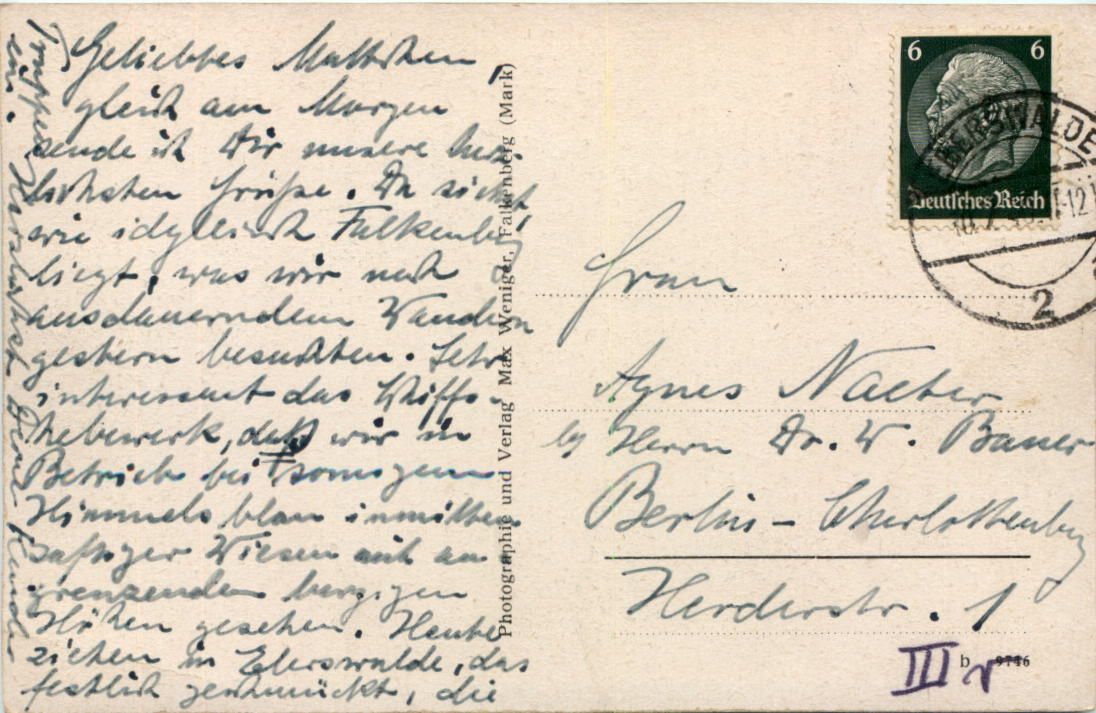 Geliebtes Muttchen,
gleich am Morgen
sende ich Dir unsere herz-
lichsten Grüße. Du siehst
wie idyllisch Falkenberg
liegt, was wir nach
ausdauerndem Wandern
gestern besuchten. Sehr
interessant das Schiffs-
hebewerk, daß wir in
Betrieb bei sonnigem
Himmelsblau inmitten
saftiger Wiesen mit an
grenzenden bergigen
Höhen gesehen. Heute
ziehen in Eberswalde, das
festlich geschmückt, die
Truppen
ein. Herzlichst Deine
Photographie und Verlag Max Weniger, Falkenberg (Mark)
6 6
Deutsches Reich
EBERSWALDE
2
Frau
Agnes
b/ Herrn Dr. W. Bauer
Berlin-Charlottenburg
Herderstr. 1
III
b 9746